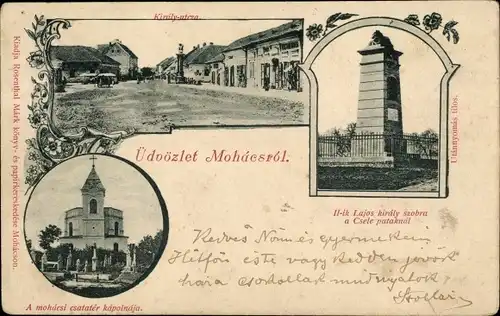 Király-utcza.
Kiadja Rosenthal Márk könyv- és papirkereskedése Mohácson.
Utánnyomás tilos.
Üdvözlet Mohácsról.
II-ik Lajos király szobra
a Csele pataknál
Kedves Nőm és gyermekeim
Hétfőn este vagy kedden jövök
haza csokollak mindnyájatok
A mohácsi csatatér kápolnája.